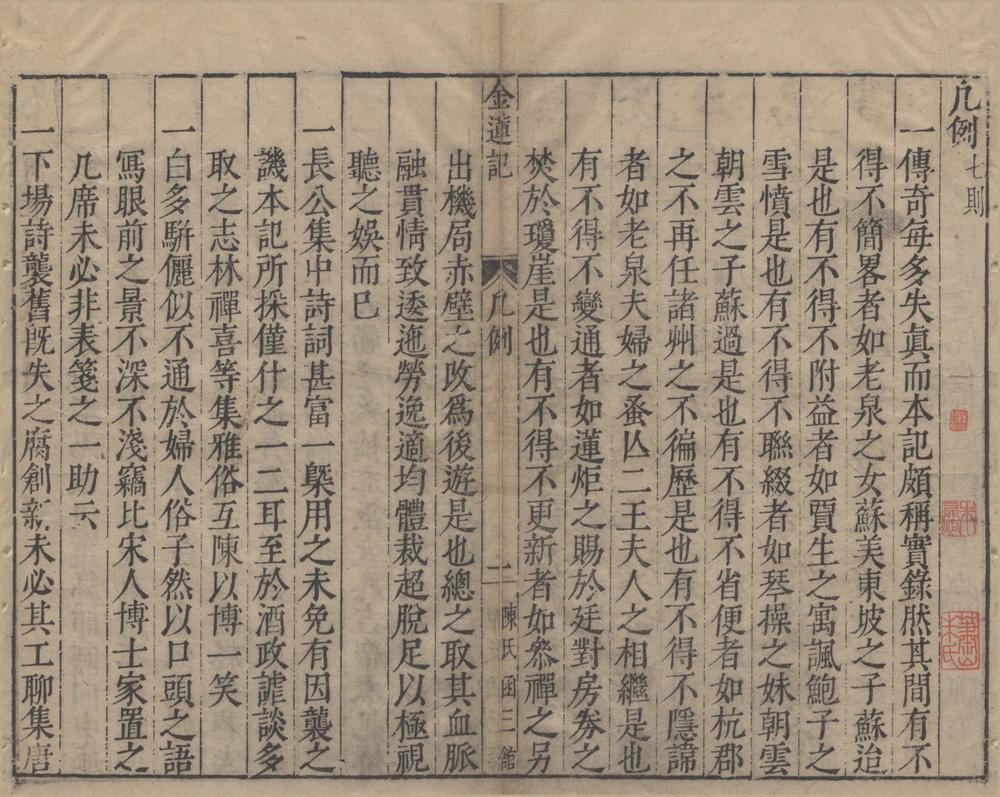 凡例七則
一傳奇每多失眞而本記頗稱實錄肰其間有不
得不簡畧者如老泉之女蘇美東坡之子蘇治
是也有不得不附益者如賈生之寓諷鮑子之
雪憤是也有不得不聯綴者如琴操之妹朝雲
朝雲之子蘇過是也有不得不省便者如杭郡
之不再任諸州之不徧歷是也有不得不隱諱
者如老泉夫婦之蚤亾二王夫人之相繼是也
有不得不變通者如蓮炬之賜於廷對房劵之
焚於瓊崖是也有不得不更新者如叅禪之另
金蓮記
凡例
二
陳氏函三館
出機局赤壁之攺爲後遊是也總之取其血脈
融貫情致逶迤勞逸適均體裁超脫足以極視
聽之娛而已
一長公集中詩詞甚富一槩用之未免有因襲之
譏本記所採僅什之一二耳至於酒政謔談多
取之志林禪喜等集雅俗互陳以博一笑
一白多騈儷似不通於婦人俗子然以口頭之語
寫眼前之景不深不淺竊比宋人博士家置之
几席未必非表箋之一助云
一下場詩襲舊旣失之腐創新未必其工聊集唐